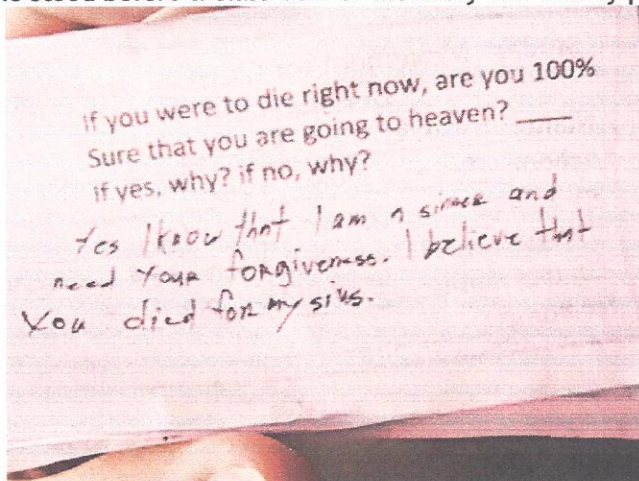 If you were to die right now, are you 100%
Sure that you are going to heaven? ____
if yes, why? if no, why?
Yes I know that I am a sinner and
need Your forgiveness. I believe that
You died for my sins.